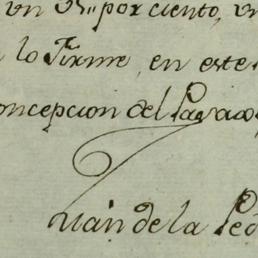 un 35,, por ciento, un
lo Firme, en este
oncepcion del Parao
Juan de la Peð